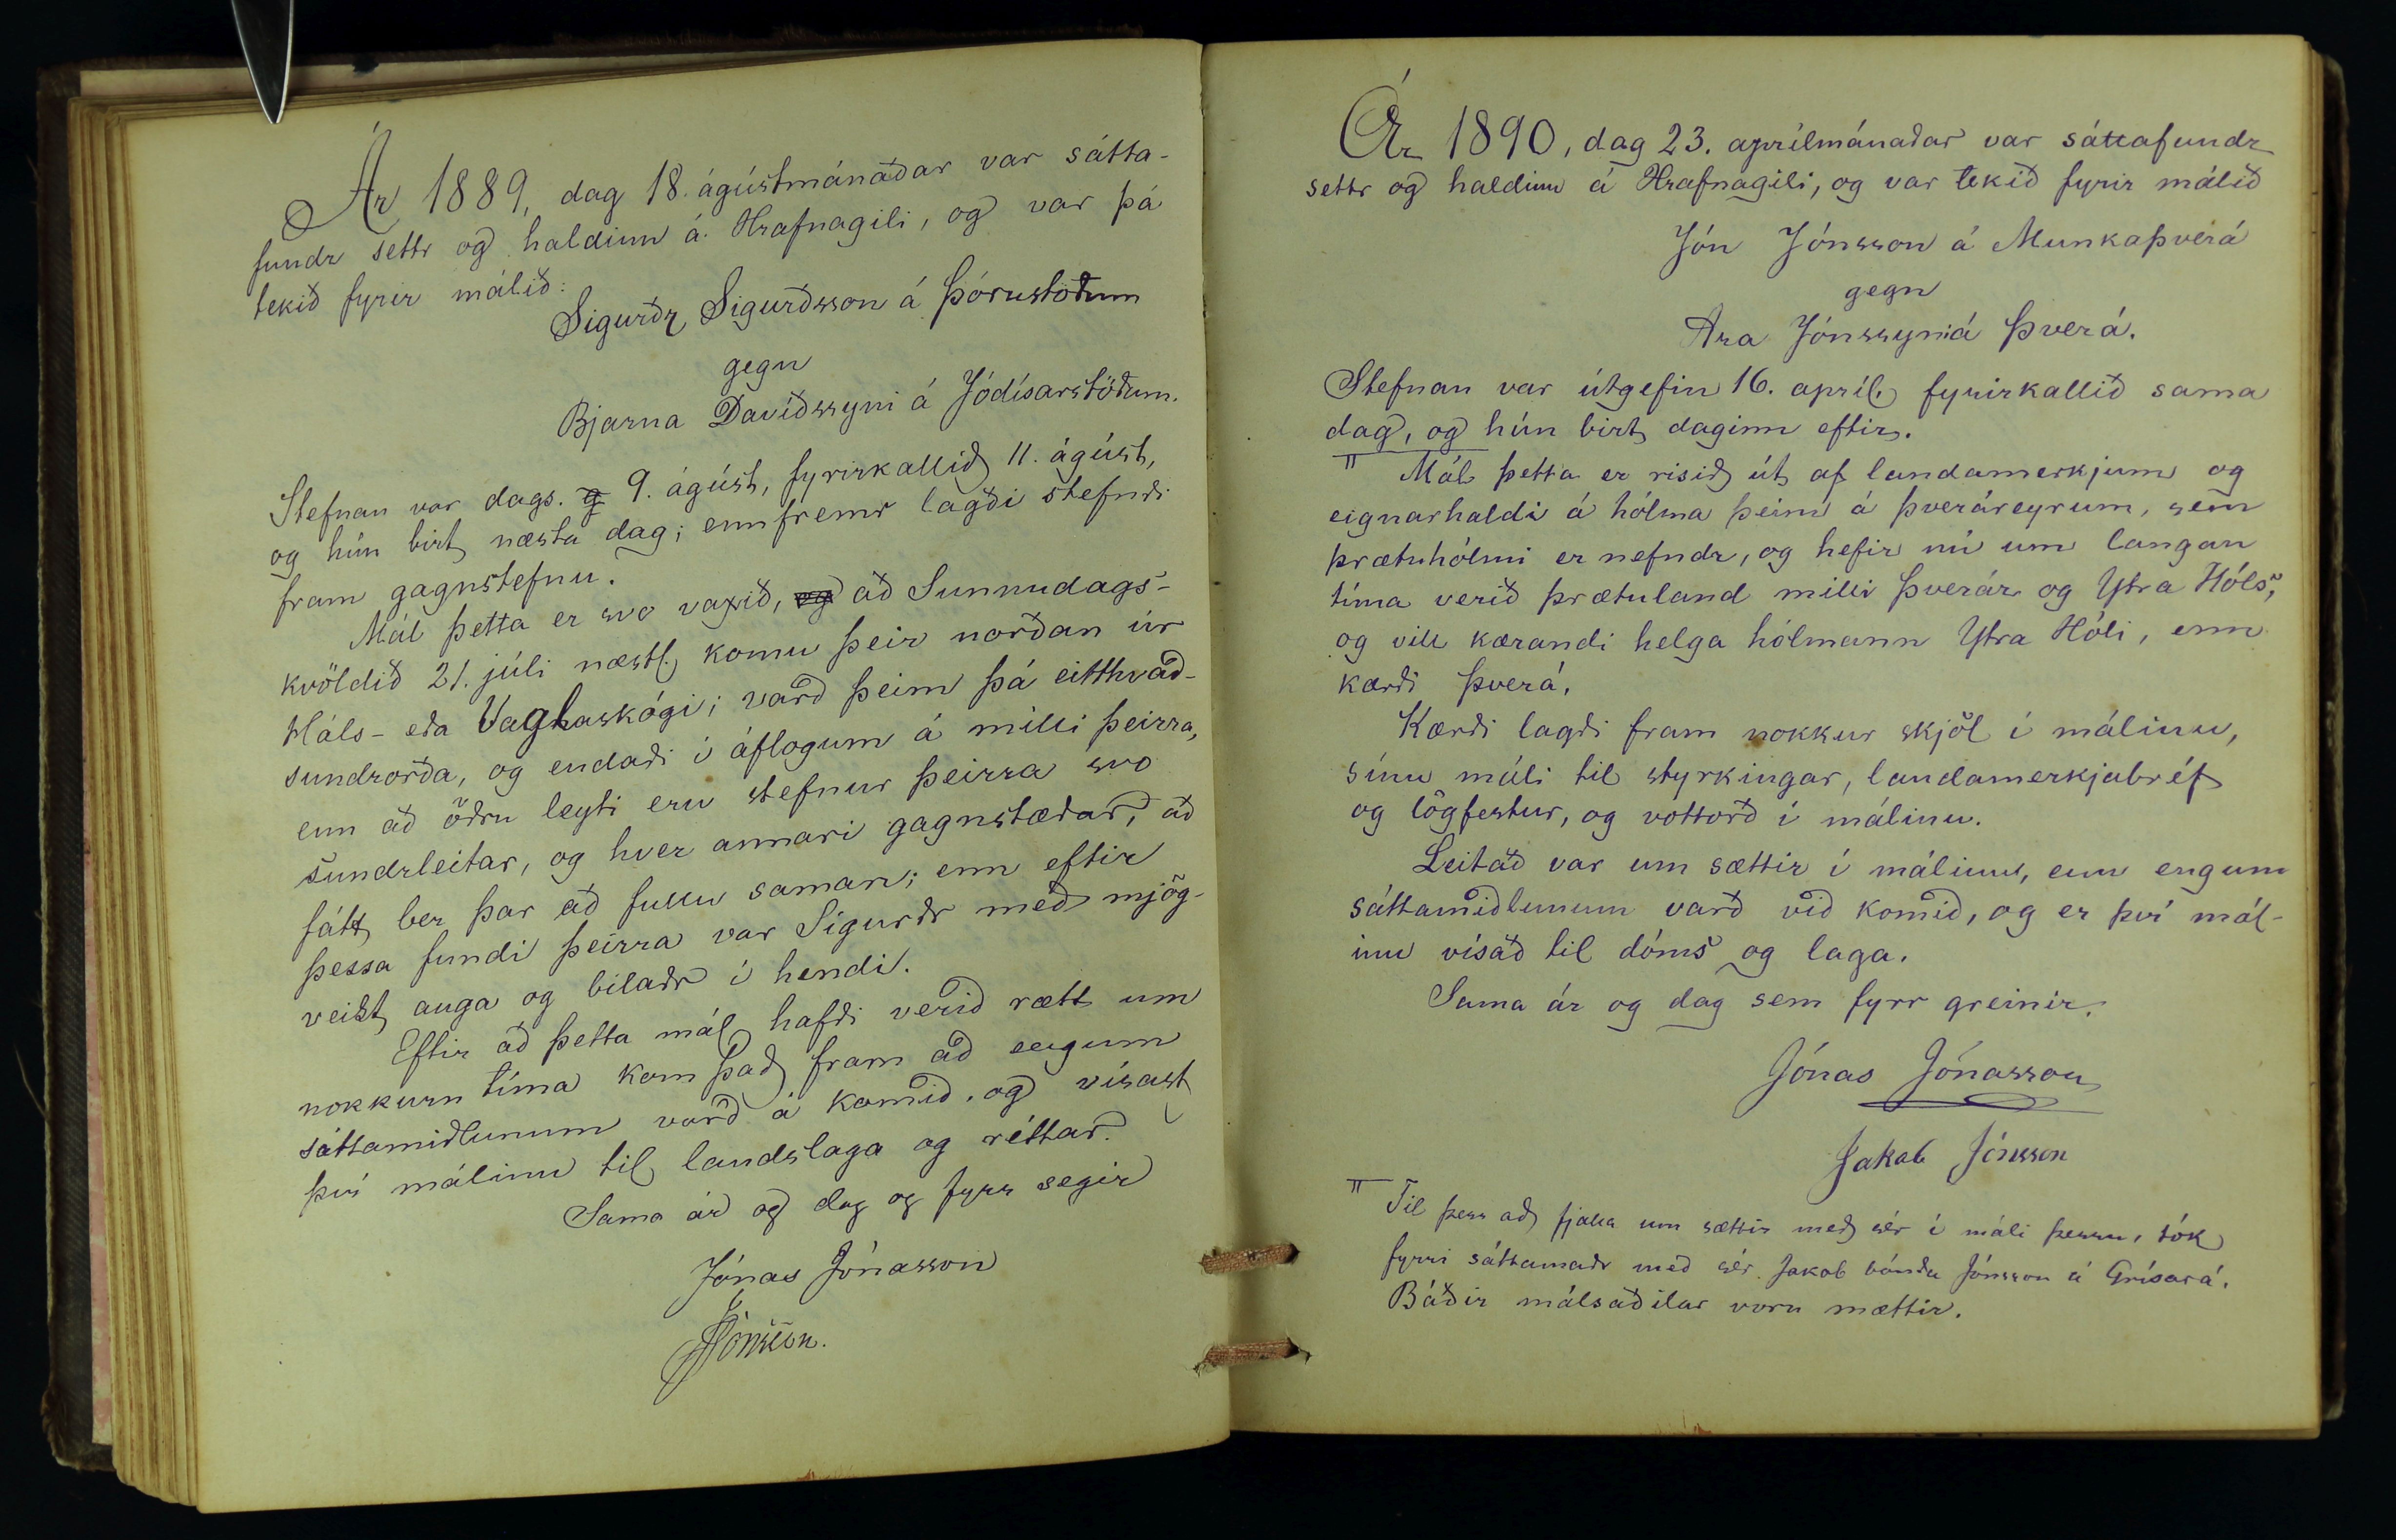 Ár 1889, dag 18. ágústmánaðar var sátta-
fundr settr og haldinn á Hrafnagili, og var þá
tekið fyrir málið:
Sigurðr Sigurðsson á Þórustöðum
gegn
Bjarna Davíðssyni á Jódísarstöðum.
Stefnan var dags. 9. ágúst, fyrirkallið 11. ágúst,
og hún birt næsta dag; ennfremr lagði stefndi
fram gagnstefnu.
Mál þetta er svo vaxið, og að Sunnudags-
kvöldið 21. júlí næstl. komu þeir norðan úr
Háls- eða Vaglaskógi; varð þeim þá eitthvað
sundrorða, og endaði í áflogum á milli þeirra,
enn að öðru leyti eru stefnur þeirra svo
sundrleitar, og hver annari gagnstæðar, að
fátt ber þar að fullu saman; enn eftir
þessa fundi þeirra var Sigurðr með mjög
veikt auga og bilaðr í hendi.
Eftir að þetta mál hafði verið rætt um
nokkurn tíma kom það fram að engum
sáttamiðlunum varð á komið, og vísast
því málinu til landslaga og réttar.
Sama ár og dag og fyrr segir
Jónas Jónasson
JJónsson.
Ár 1890, dag 23. aprílmánaðar var sáttafundr
settr og haldinn á Hrafnagili, og var tekið fyrir málið
Jón Jónsson á Munkaþverá
gegn
Ara Jónssyni á Þverá.
Stefnan var útgefin 16. apríl, fyrirkallið sama
dag, og hún birt daginn eftir.
π Mál þetta er risið út af landamerkjum og
eignarhaldi á hólma þeim á Þveráreyrum, sem
þrætuhólmi er nefndr, og hefir nú um langan
tíma verið þrætuland milli Þverár og Ytra Hóls,
og vill kærandi helga hólmann Ytra Hóli, enn
kærði Þverá.
Kærði lagði fram nokkur skjöl í málinu,
sínu máli til styrkingar, landamerkjabréf
og lögfestur, og vottorð í málinu.
Leitað var um sættir í málinu, enn engum
sáttamiðlunum varð við komið, og er því mál-
inu vísað til dóms og laga.
Sama ár og dag sem fyrr greinir.
Jónas Jónasson
Jakob Jónsson
π Til þess að fjalla um sættir með sér í máli þessu, tók
fyrri sáttamaðr með sér Jakob bónda Jónsson á Grísará.
Báðir málsaðilar voru mættir.